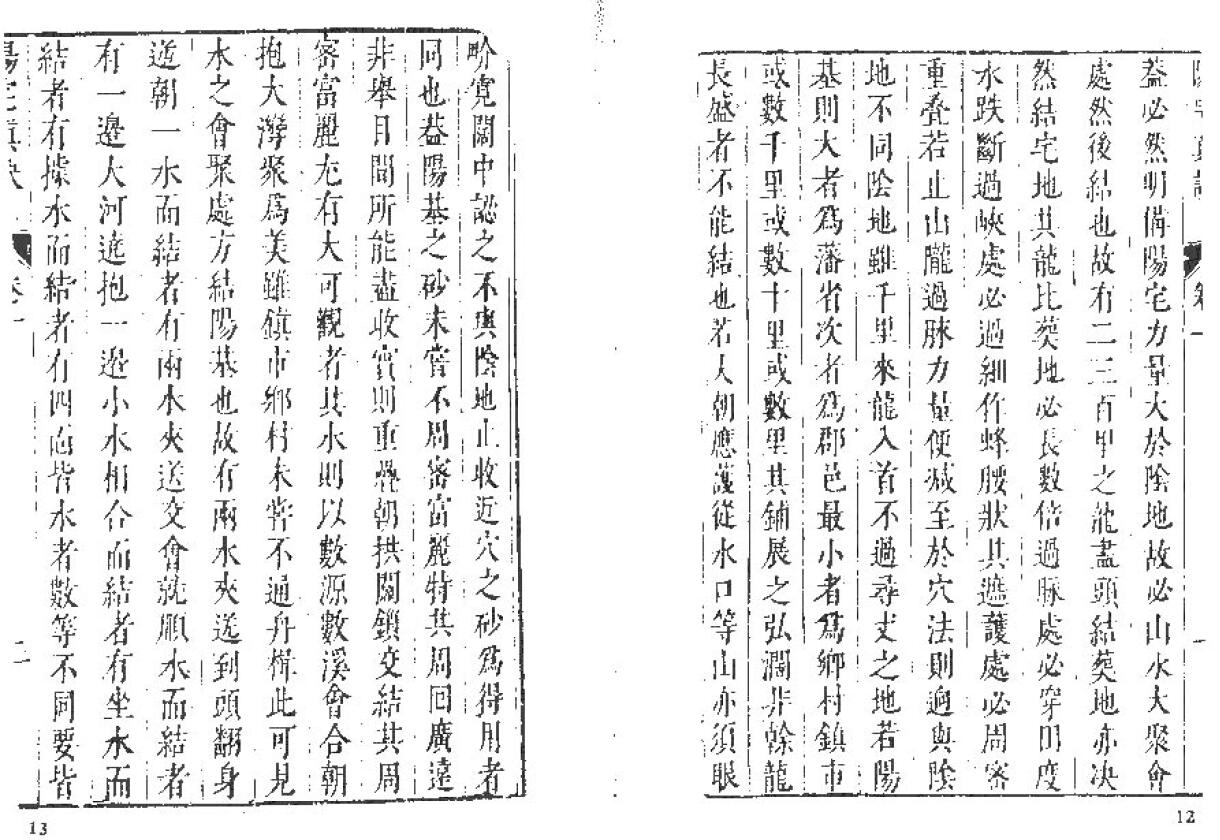 蓋必然明備陽宅力量大於陰地故必山水大聚會
處然後結也故有二三百里之龍盡頭結葬地亦决
然結宅地其龍比葬地必長數倍過脉處必穿田度
水跌斷過峽處必過細作蜂腰狀其遮護處必周密
重疊若止山隴過脉力量便减至於穴法則逈與陰
地不同陰地雖千里來龍入首不過尋丈之地若陽
基則大者爲藩省次者爲郡邑最小者爲鄉村鎮市
或數千里或數十里或數里其鋪展之弘濶非榦龍
長盛者不能結也若大朝應護從水口等山亦須眼
12
界寬闊中認之不與陰地止收近穴之砂爲得用者
同也葢陽基之砂未嘗不周密富麗特其周回廣遠
非舉目間所能盡收實則重疊朝拱關鎖交結其周
密富麗尤有大可觀者其水則以數源數溪會合朝
抱大灣聚爲美雖鎮市鄉村未嘗不通舟楫此可見
水之會聚處方結陽基也故有兩水夾送到頭翻身
逆朝一水而結者有兩水夾送交會就順水而結者
有一邉大河遶抱一邉小水相合而結者有坐水而
結者有據水而結者有四面皆水者數等不同要皆
陽宅真訣
卷一
二
13